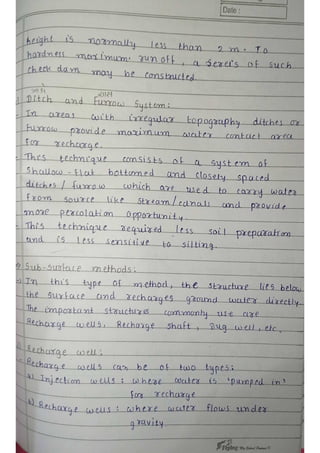 Date :
height is normally less than 2 m. To
hardness maximum runoff, a sereis of such
check dam may be constructed.
Ditch and Furrow System:
In areas with irregular topography ditches or
furrow provide maximum water contact area
for recharge.
This technique consists of a system of
shallow-flat bottomed and closely spaced
ditches / furrow which are used to carry water
from source like stream/canals and provide
more percolation opportunity.
This technique required less soil preparation
and is less sensitive to silting.
Sub-surface methods:
In this type of method, the structure lies below
the surface and recharges ground water directly.
The important structures commonly use are
Recharge wells, Recharge shaft, Dug well, etc.
Recharge well:
Recharge wells can be of two types:
a) Injection wells : where water is 'pumped in'
for recharge
b) Recharge wells : where water flows under
gravity